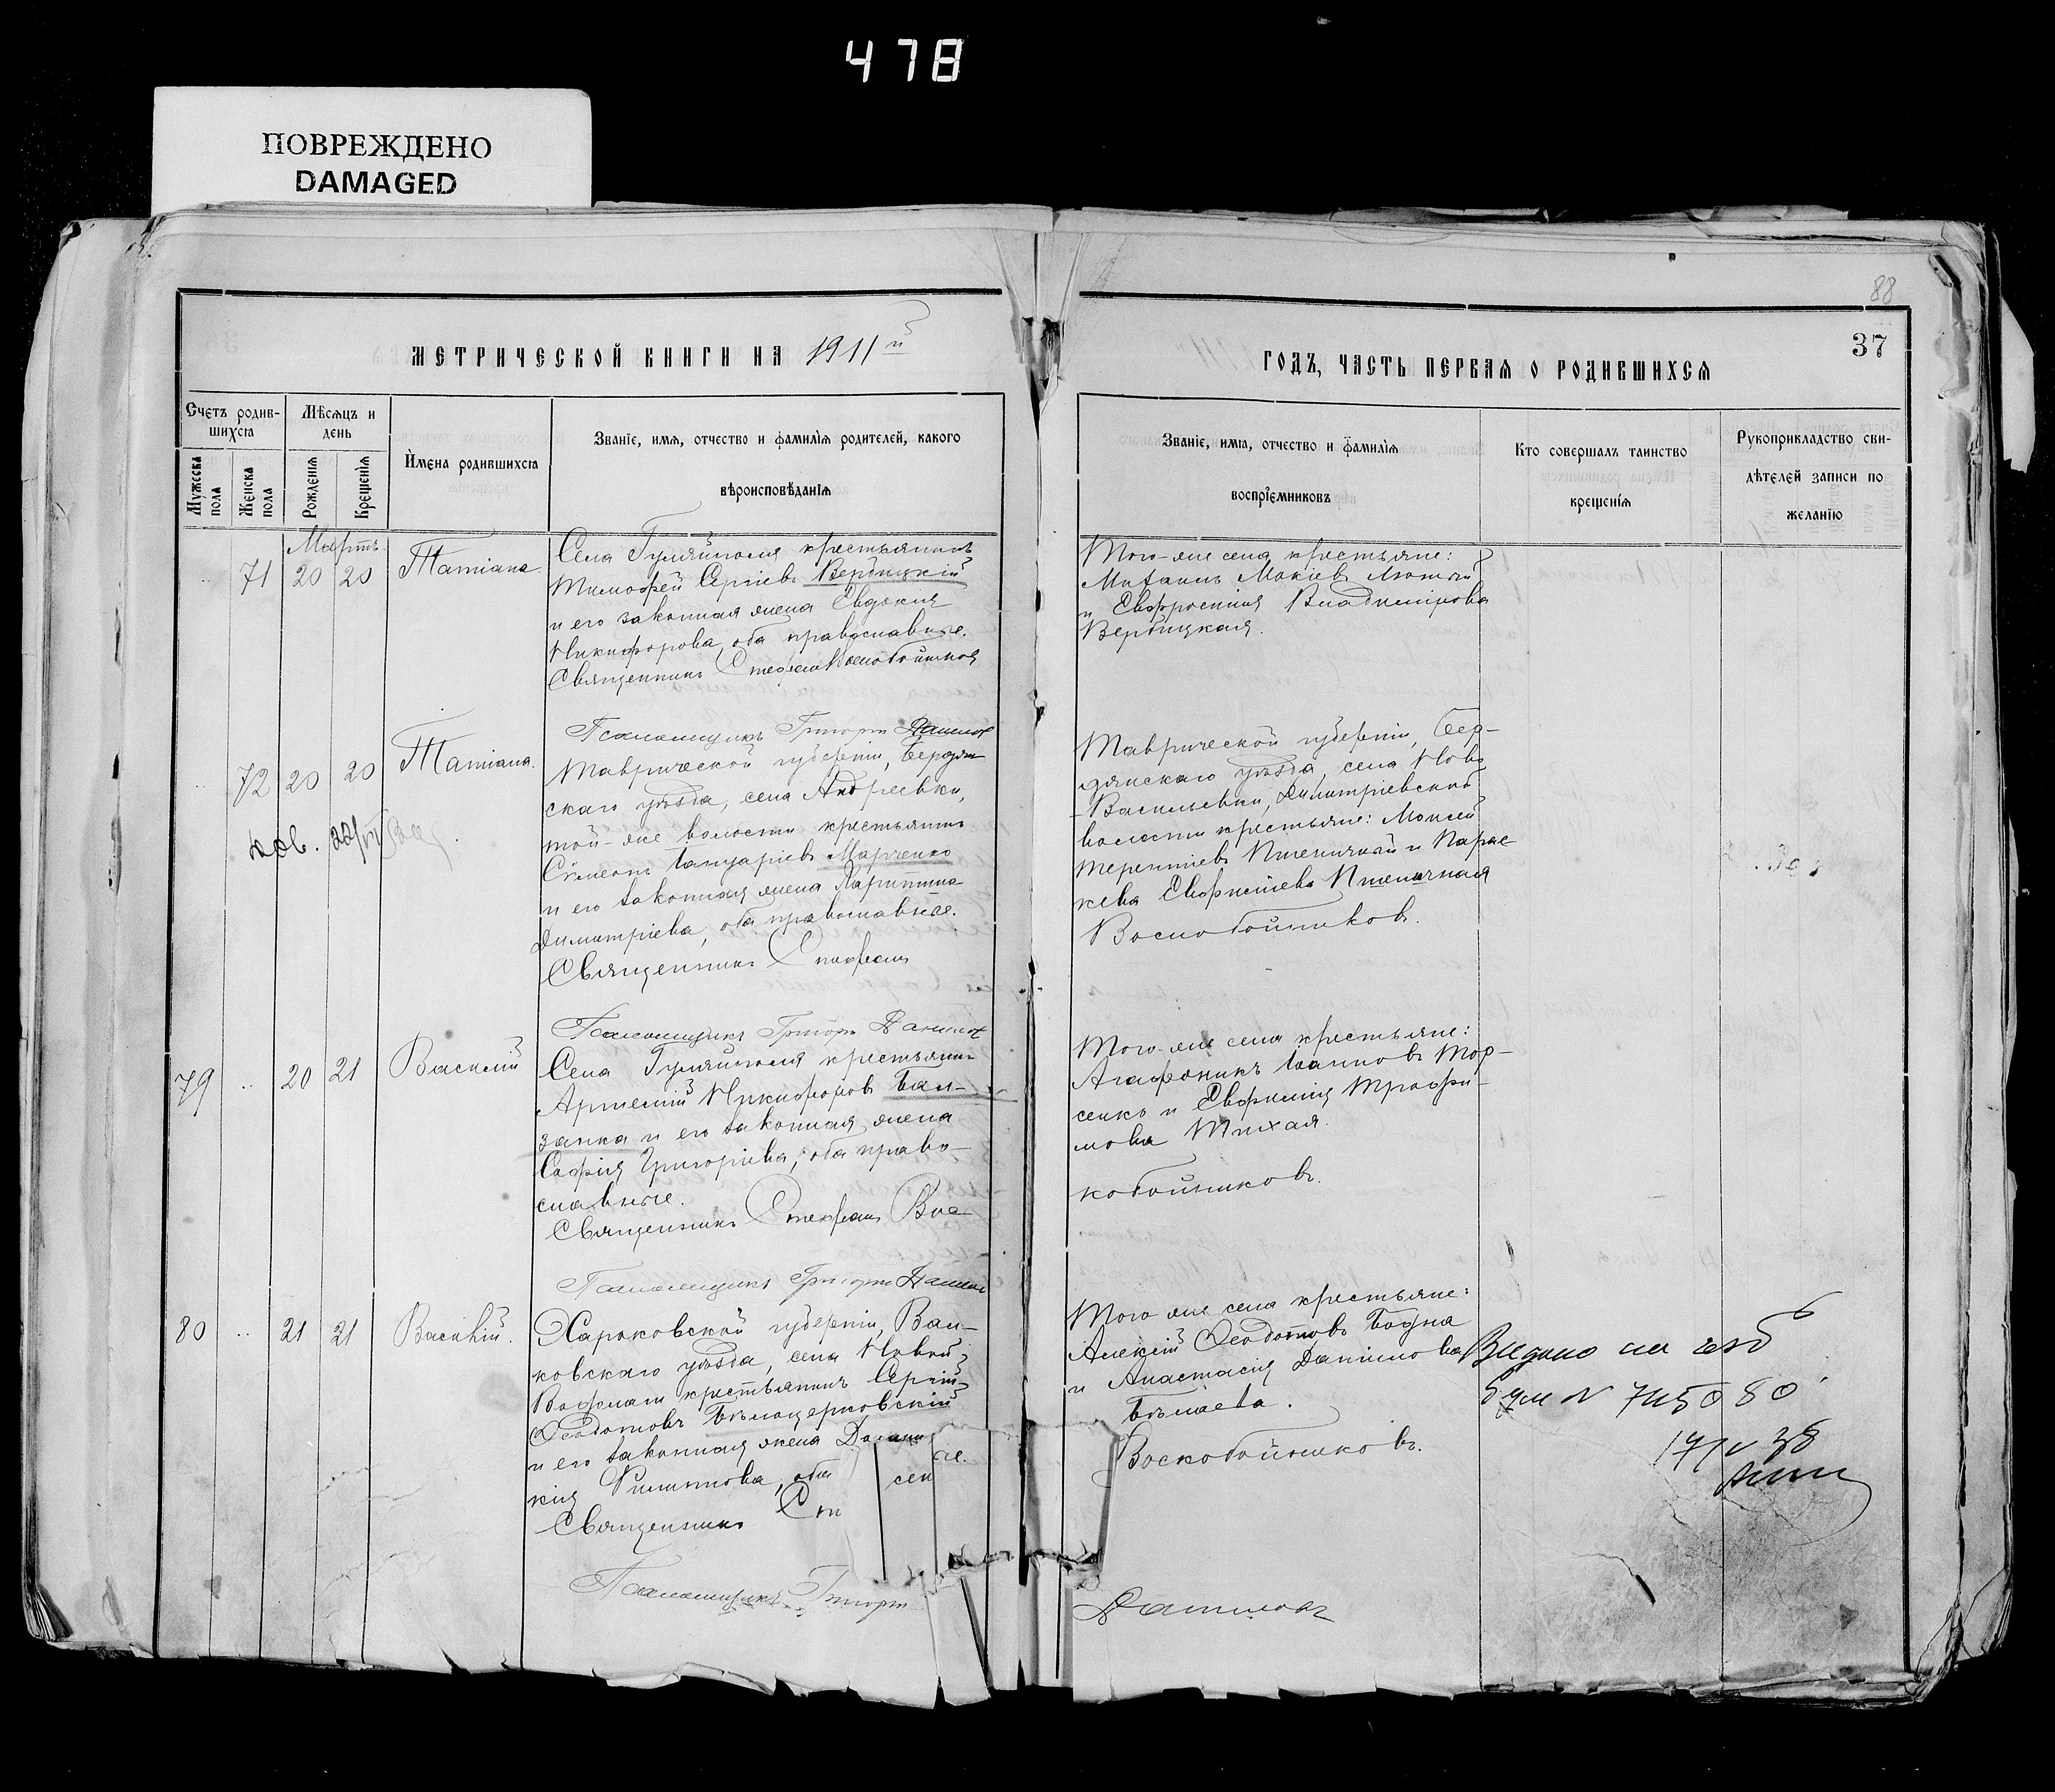 478
ПОВРЕЖДЕНО
DAMAGED
88
37
МЕТРИЧЕСКОЙ КНИГИ НА 1911й
ГОДЪ, ЧАСТЬ ПЕРВАЯ О РОДИВШИХСЯ
Счетъ родив-
шихся
Мужеска пола
Женска пола
Мѣсяцъ и
день
Рожденія
Крещенія
Имена родившихся
Званіе, имя, отчество и фамилія родителей, какого
вѣроисповѣданія
Званіе, имя, отчество и фамилія
воспріемниковъ
Кто совершалъ таинство
крещенія
Рукоприкладство сви-
дѣтелей записи по
желанію
Мартъ
71 20 20 Татіана
Села Гуляйполя крестьянинъ
Тимофей Сергіевъ Вербицкій
и его законная жена Евдокія
Никифорова, оба православные.
Священникъ Стефанъ Воскобойников
Псаломщикъ Григорій Данилов
Того-же села крестьяне:
Михаилъ Мокіевъ Лютый
и Евфросинія Владимірова
Вербицкая.
72 20 20 Татіана.
Таврической губерніи, Бердян
скаго уѣзда, села Андреевки,
той-же волости крестьянинъ
Сѵмеонъ Іануаріевъ Марченко
и его законная жена
Димитріева, оба православные.
Священникъ Стефанъ
Псаломщикъ Григорій Данилов
Таврической губерніи, Бер-
дянскаго уѣзда, села Ново
-Васильевки, Димитріевской
волости крестьяне: Моисей
Терентіевъ Пшеничный и Парас
кева Евфиміева Пшеничная
Воскобойниковъ.
79 .. 20 21 Василій
Села Гуляйполя крестьянинъ
Артемій Никифоровъ Бал-
занка и его законная жена
Софія Григоріева, оба право-
славные.
Священникъ Стефанъ Вос
Псаломщикъ Григорій Данилов
Того-же села крестьяне:
Агафоникъ Іоанновъ Мор-
сенко и Евфимія Трофи-
мова Тихая.
кобойниковъ.
80 .. 21 21 Василій.
Харьковской губерніи, Вал-
ковскаго уѣзда, села Новой
Водолаги крестьянинъ Сергій
Ѳеодотовъ Бѣлоцерковскій
и его законная жена
кія Филиппова, оба
Священникъ Сте
Псаломщикъ Григорій
Того же села крестьяне:
Алексій Ѳеодотовъ Бодна
и Анастасія Данилова
Бѣлаева.
Воскобойниковъ.
Даниловъ
Видано
№ 745080